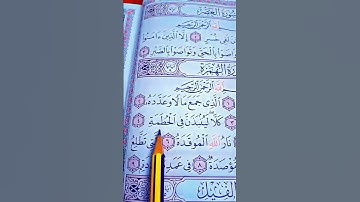 سُورَةُ العَصْرِ
اللَّهِ الرَّحْمَٰنِ الرَّحِيمِ
خُسْرٍ ٢ إِلَّا الَّذِينَ ءَامَنُوا
بِالْحَقِّ وَتَوَاصَوْا بِالصَّبْرِ
سُورَةُ الهُمَزَةِ
اللَّهِ الرَّحْمَٰنِ الرَّحِيمِ
١ الَّذِى جَمَعَ مَالًا وَعَدَّدَهُ ٢
٣ كَلَّا لَيُنبَذَنَّ فِى الْحُطَمَةِ ٤
نَارُ اللَّهِ الْمُوقَدَةُ ٦ تَطَّلِعُ
مُّؤْصَدَةٌ ٨ فِى عَمَدٍ
الفِيلِ